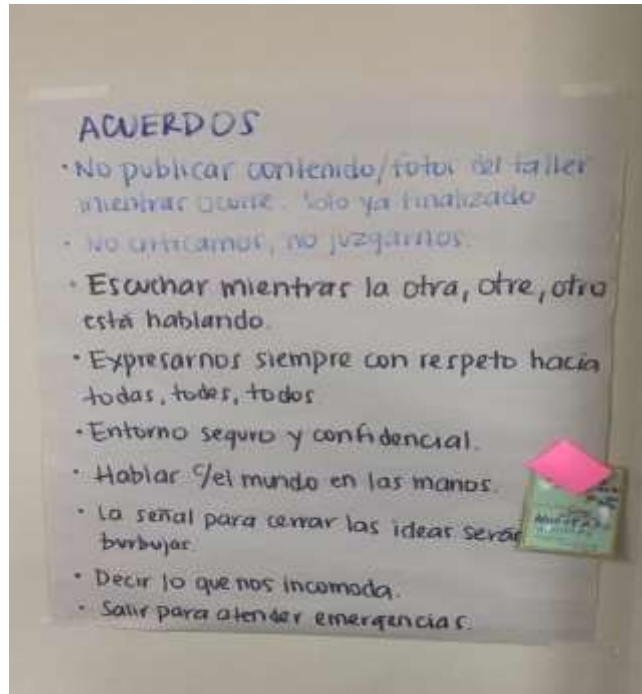 ACUERDOS
· No publicar contenido/fotos del taller
mientras ocurre. Solo ya finalizado
· No criticamos, no juzgamos.
· Escuchar mientras la otra, otre, otro
está hablando.
· Expresarnos siempre con respeto hacia
todas, todes, todos
· Entorno seguro y confidencial.
· Hablar c/el mundo en las manos.
· La señal para cerrar las ideas serán
burbujas
· Decir lo que nos incomoda.
· Salir para atender emergencias.